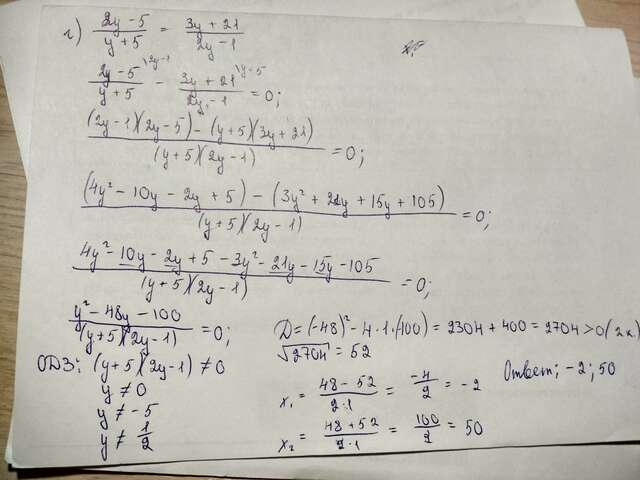 г) (2y - 5)/(y + 5) = (3y + 21)/(2y - 1)
(2y - 5)/(y + 5) \2y-1 - (3y + 21)/(2y - 1) \y+5 = 0;
((2y - 1)(2y - 5) - (y + 5)(3y + 21))/((y + 5)(2y - 1)) = 0;
((4y² - 10y - 2y + 5) - (3y² + 21y + 15y + 105))/((y + 5)(2y - 1)) = 0;
(4y² - 10y - 2y + 5 - 3y² - 21y - 15y - 105)/((y + 5)(2y - 1)) = 0;
(y² - 48y - 100)/((y + 5)(2y - 1)) = 0;
ОДЗ: (y + 5)(2y - 1) ≠ 0
y ≠ 0
y ≠ -5
y ≠ 1/2
D = (-48)² - 4·1·(100) = 2304 + 400 = 2704 > 0 (2к.)
√2704 = 52
x₁ = (48 - 52)/(2·1) = -4/2 = -2
x₂ = (48 + 52)/(2·1) = 100/2 = 50
Ответ: -2; 50